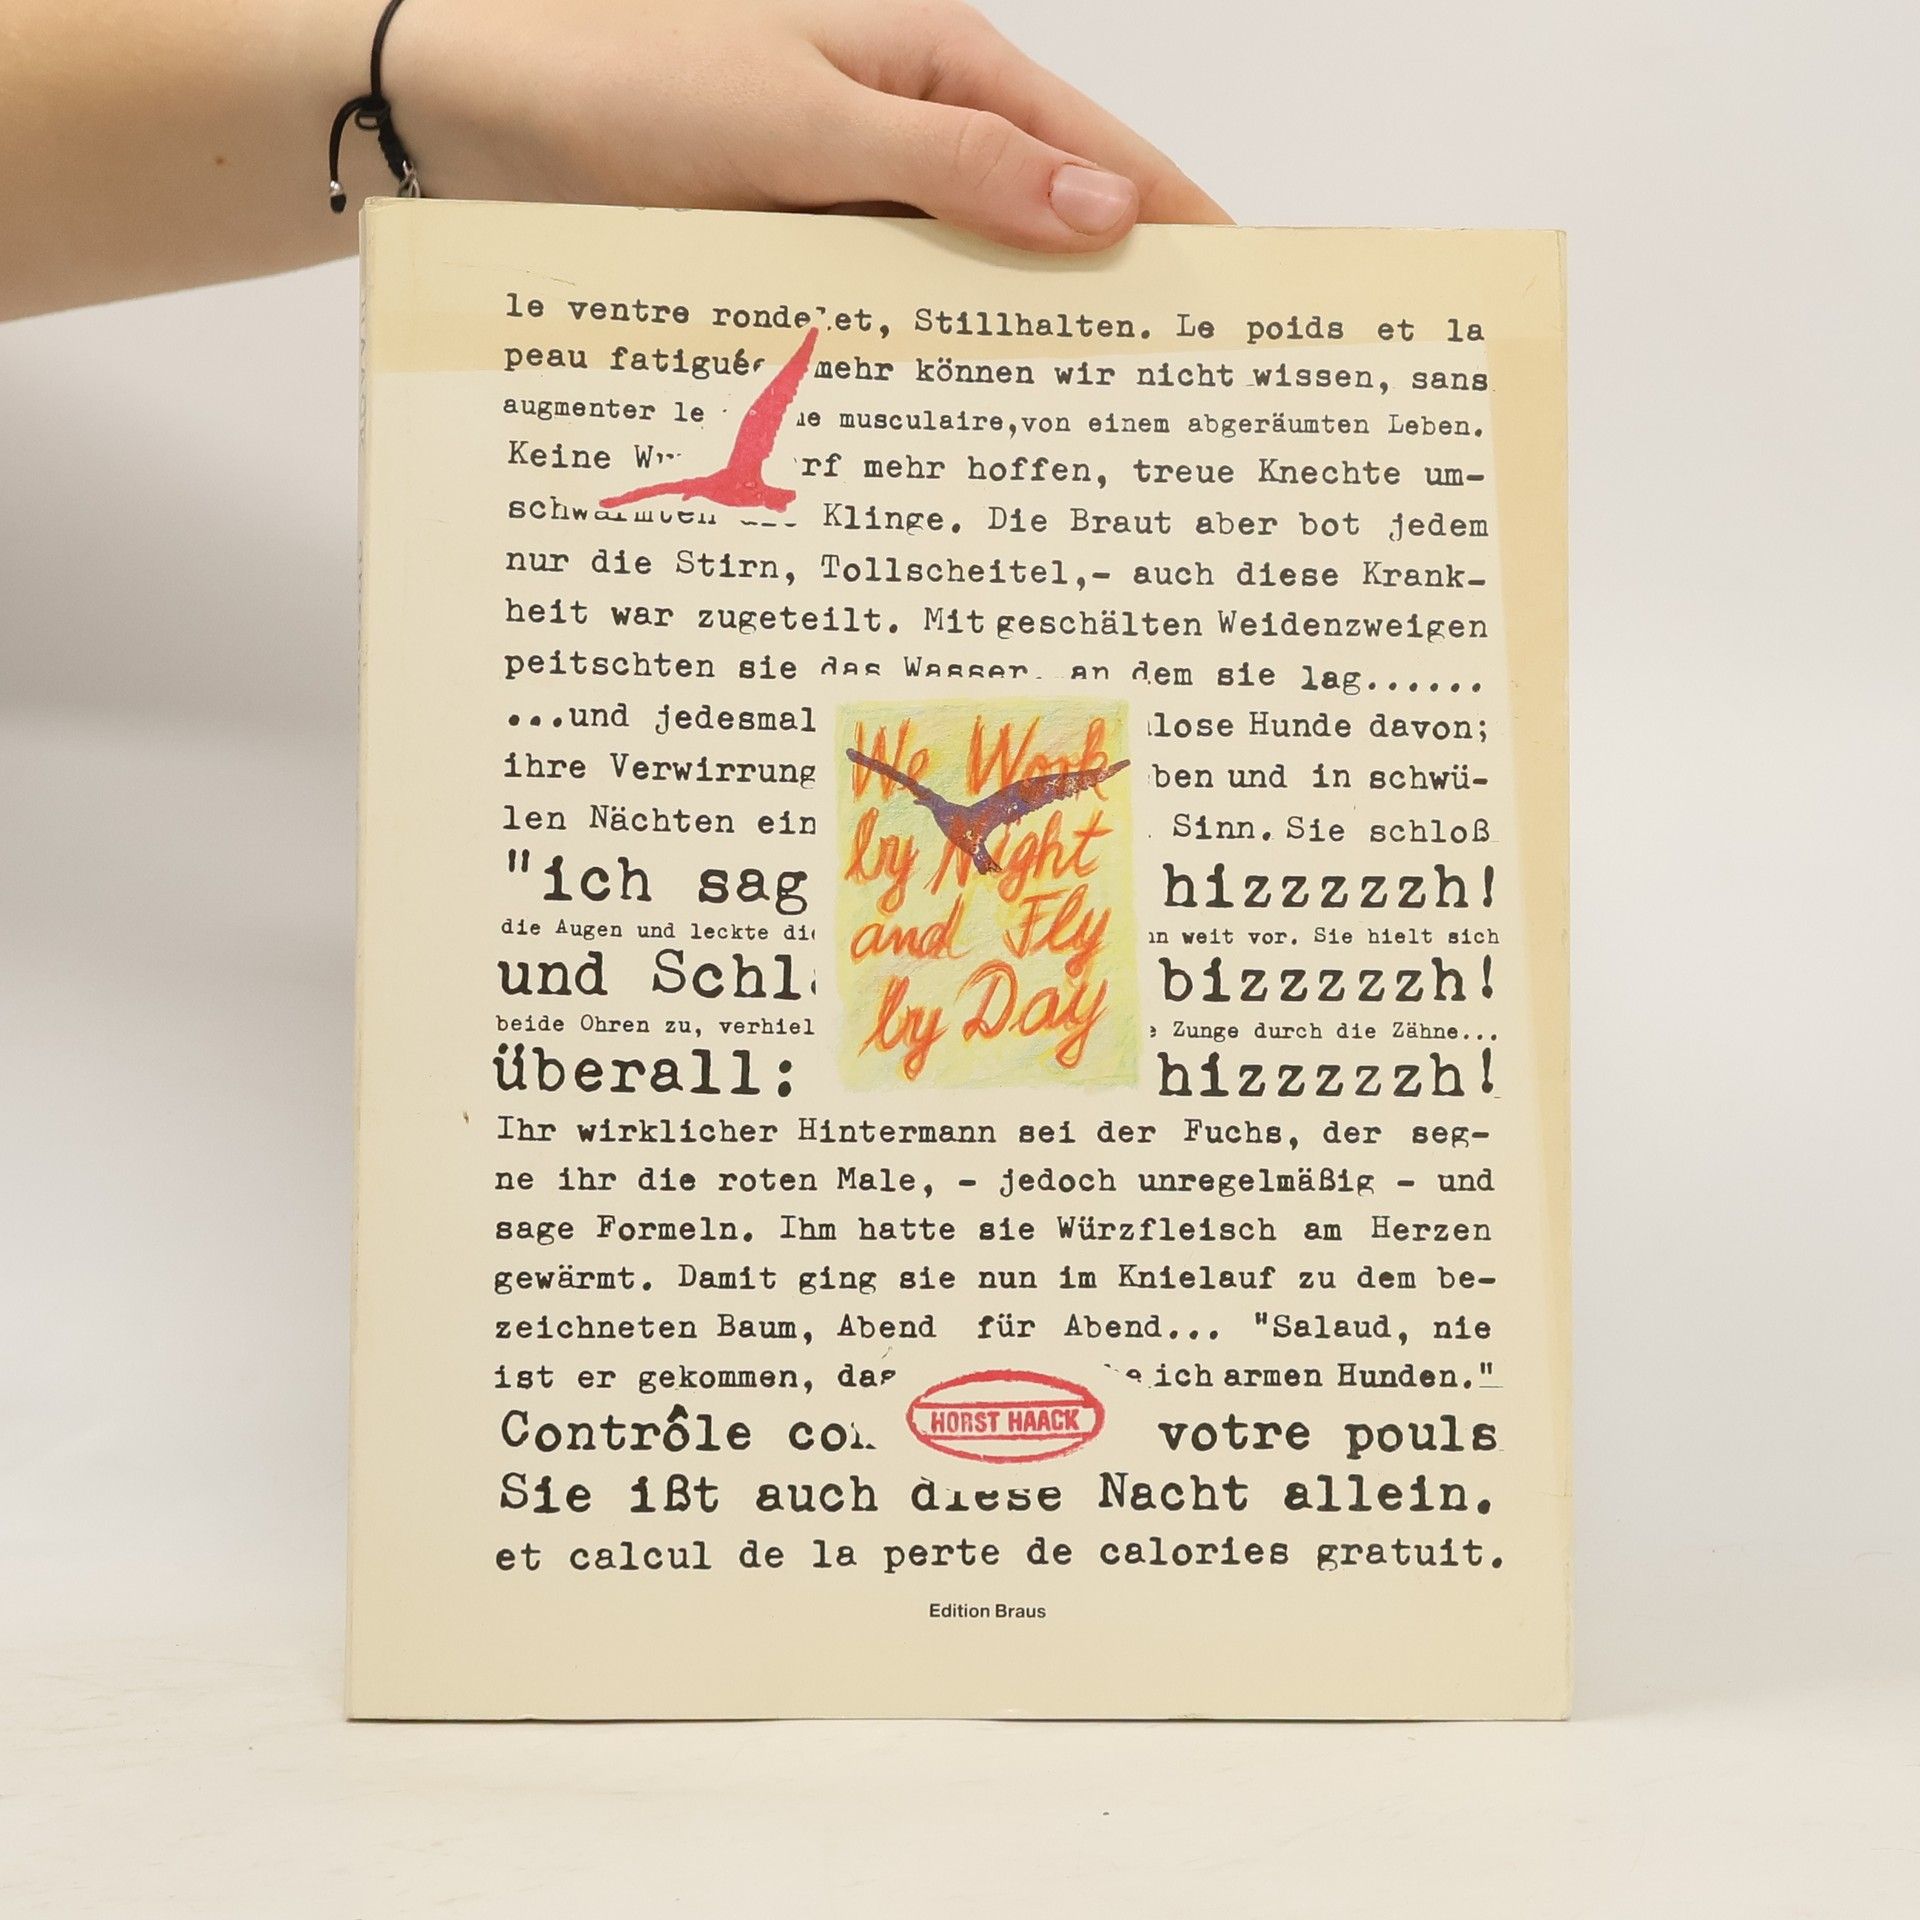 le ventre rondelet, Stillhalten. Le poids et la
peau fatiguée mehr können wir nicht wissen, sans
augmenter le musculaire, von einem abgeräumten Leben.
Keine mehr hoffen, treue Knechte um-
Klinge. Die Braut aber bot jedem
nur die Stirn, Tollscheitel,- auch diese Krank-
heit war zugeteilt. Mit geschälten Weidenzweigen
peitschten sie das Wasser, an dem sie lag......
...und jedesmal lose Hunde davon;
ihre Verwirrung ben und in schwü-
len Nächten ein Sinn. Sie schloß
"ich sag hizzzzzh!
die Augen und leckte weit vor. Sie hielt sich
und bizzzzzh!
beide Ohren zu, Zunge durch die Zähne...
überall: hizzzzzh!
We Work
by Night
and Fly
by Day
Ihr wirklicher Hintermann sei der Fuchs, der seg-
ne ihr die roten Male, - jedoch unregelmäßig - und
sage Formeln. Ihm hatte sie Würzfleisch am Herzen
gewärmt. Damit ging sie nun im Knielauf zu dem be-
zeichneten Baum, Abend für Abend... "Salaud, nie
ist er gekommen, ich armen Hunden."
HORST HAACK
Contrôle votre pouls
Sie ißt auch diese Nacht allein.
et calcul de la perte de calories gratuit.
Edition Braus